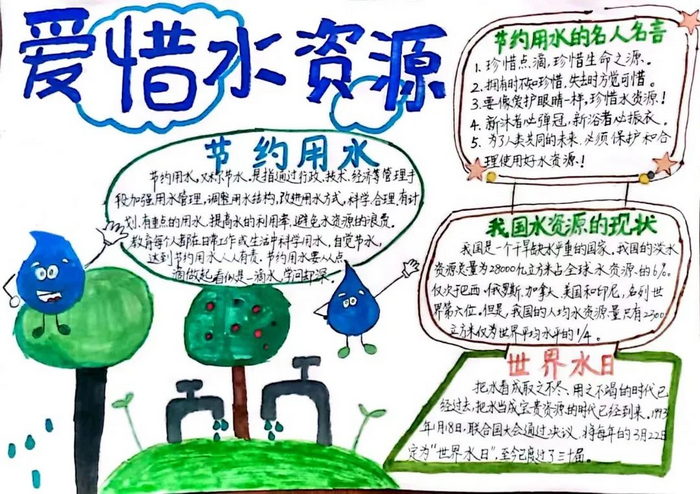 爱惜水资源
节约用水
节约用水,又称节水。是指通过行政、技术、经济等管理手
段加强用水管理,调整用水结构,改进用水方式,科学、合理、有计
划、有重点的用水,提高水的利用率,避免水资源的浪费。
教育每个人都在日常工作或生活中科学用水,自觉节水,
达到节约用水人人有责。节约用水要从点
滴做起,看似是一滴水,学问却深。
节约用水的名人名言
1、珍惜点滴,珍惜生命之源。
2、拥有时不知珍惜,失去时方觉可惜。
3、要像爱护眼睛一样,珍惜水资源!
4、新沐者必弹冠,新浴者必振衣。
5、为了人类共同的未来,必须保护和合
理使用好水资源!
我国水资源的现状
我国是一个干旱缺水严重的国家。我国的淡水
资源总量为28000亿立方米占全球水资源的6%。
仅次于巴西、俄罗斯、加拿大、美国和印尼,名列世
界第六位。但是,我国的人均水资源量只有2300
立方米仅为世界平均水平的1/4。
世界水日
把水看成取之不尽、用之不竭的时代已
经过去,把水当成宝贵资源的时代已经到来。1993
年1月18日,联合国大会通过决议,将每年的3月22日
定为“世界水日”,至今已度过了三十届。